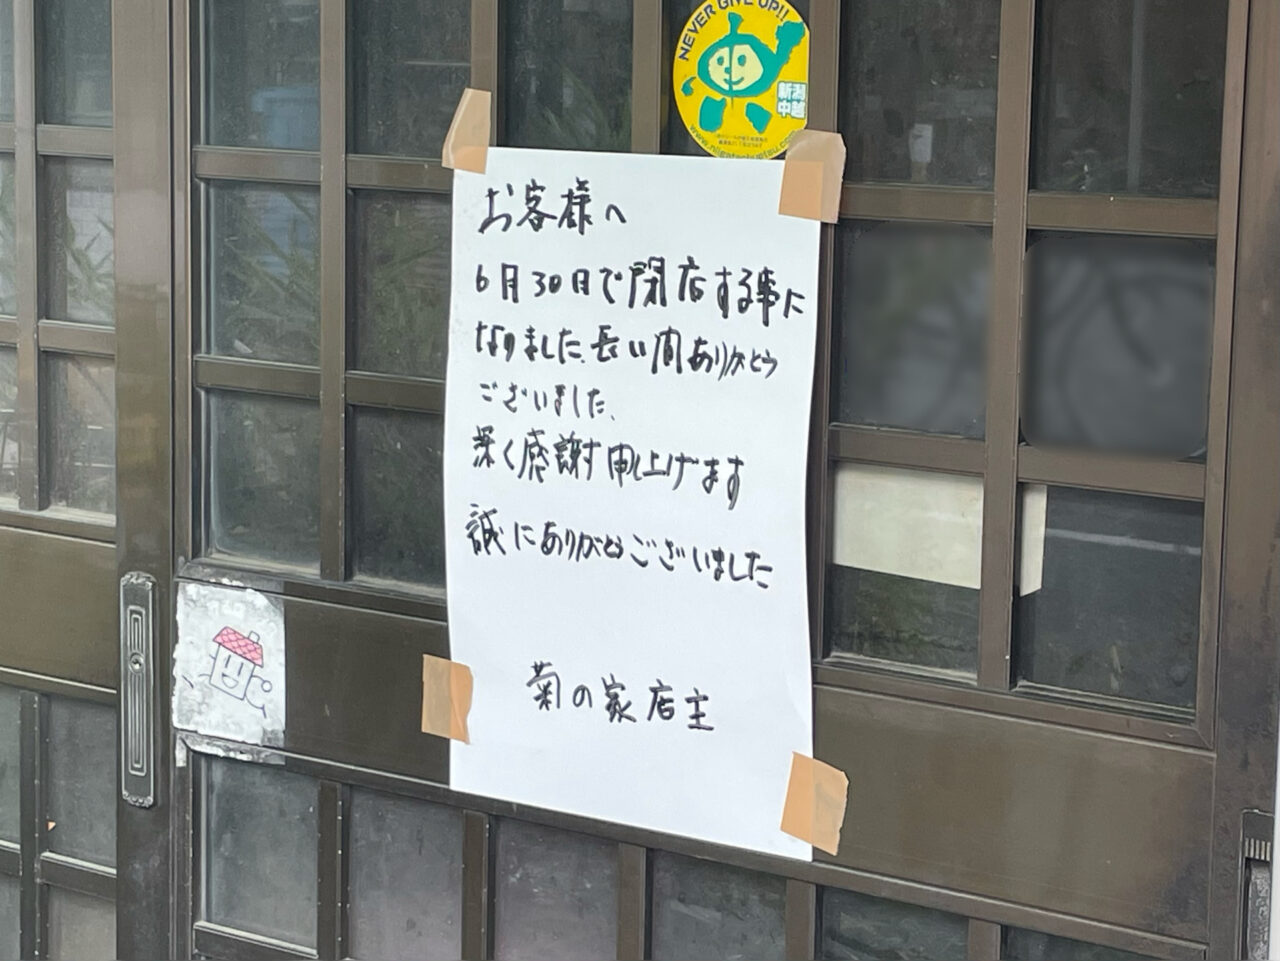 NEVER GIVE UP!!
新潟
中越
お客様へ
6月30日で閉店する事に
なりました、長い間ありがとう
ございました、
深く感謝す申し上げます
誠にありがとうございました
菊の家店主